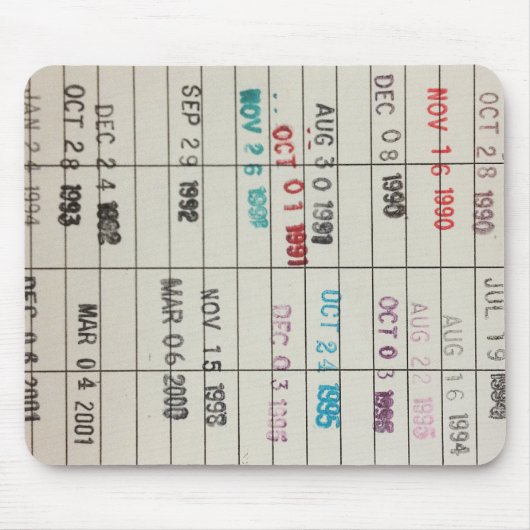 OCT 28 1990
NOV 16 1990
DEC 08 1990
AUG 30 1991
OCT 01 1991
NOV 26 1991
SEP 29 1992
DEC 24 1992
OCT 28 1993
JAN 24 1994
JUL 19
AUG 16 1994
AUG 22 1995
OCT 03 1995
OCT 24 1995
DEC 03 1996
NOV 15 1998
MAR 06 2000
MAR 04 2001
DEC 06 2001